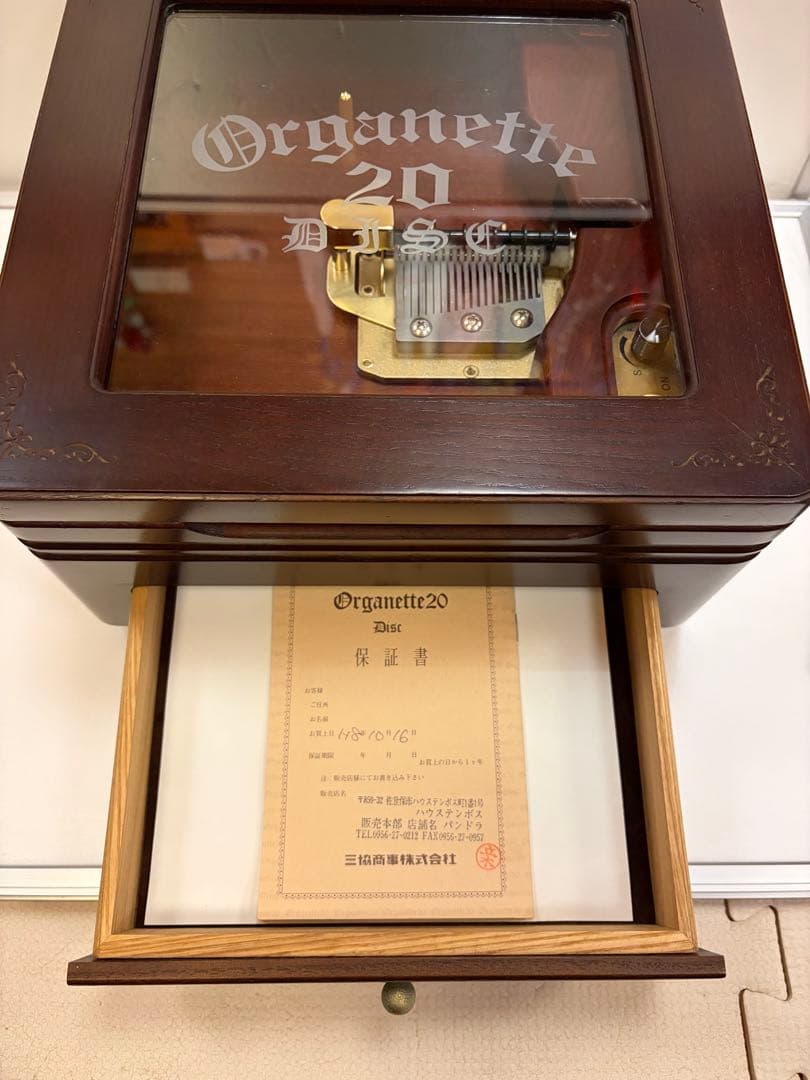 Organette
20
DISC
S
ON
Organette20
Disc
保証書
お客様
ご住所
お名前
お買上日 H8年10月16日
保証期限 年 月 日
お買上の日から1ヶ年
注:販売店様にてお書き込み下さい
販売店名
〒859-32 佐世保市ハウステンボス町1番1号
ハウステンボス
販売本部 店舗名 パンドラ
TEL0956-27-0212 FAX0956-27-0957
三協商事株式会社